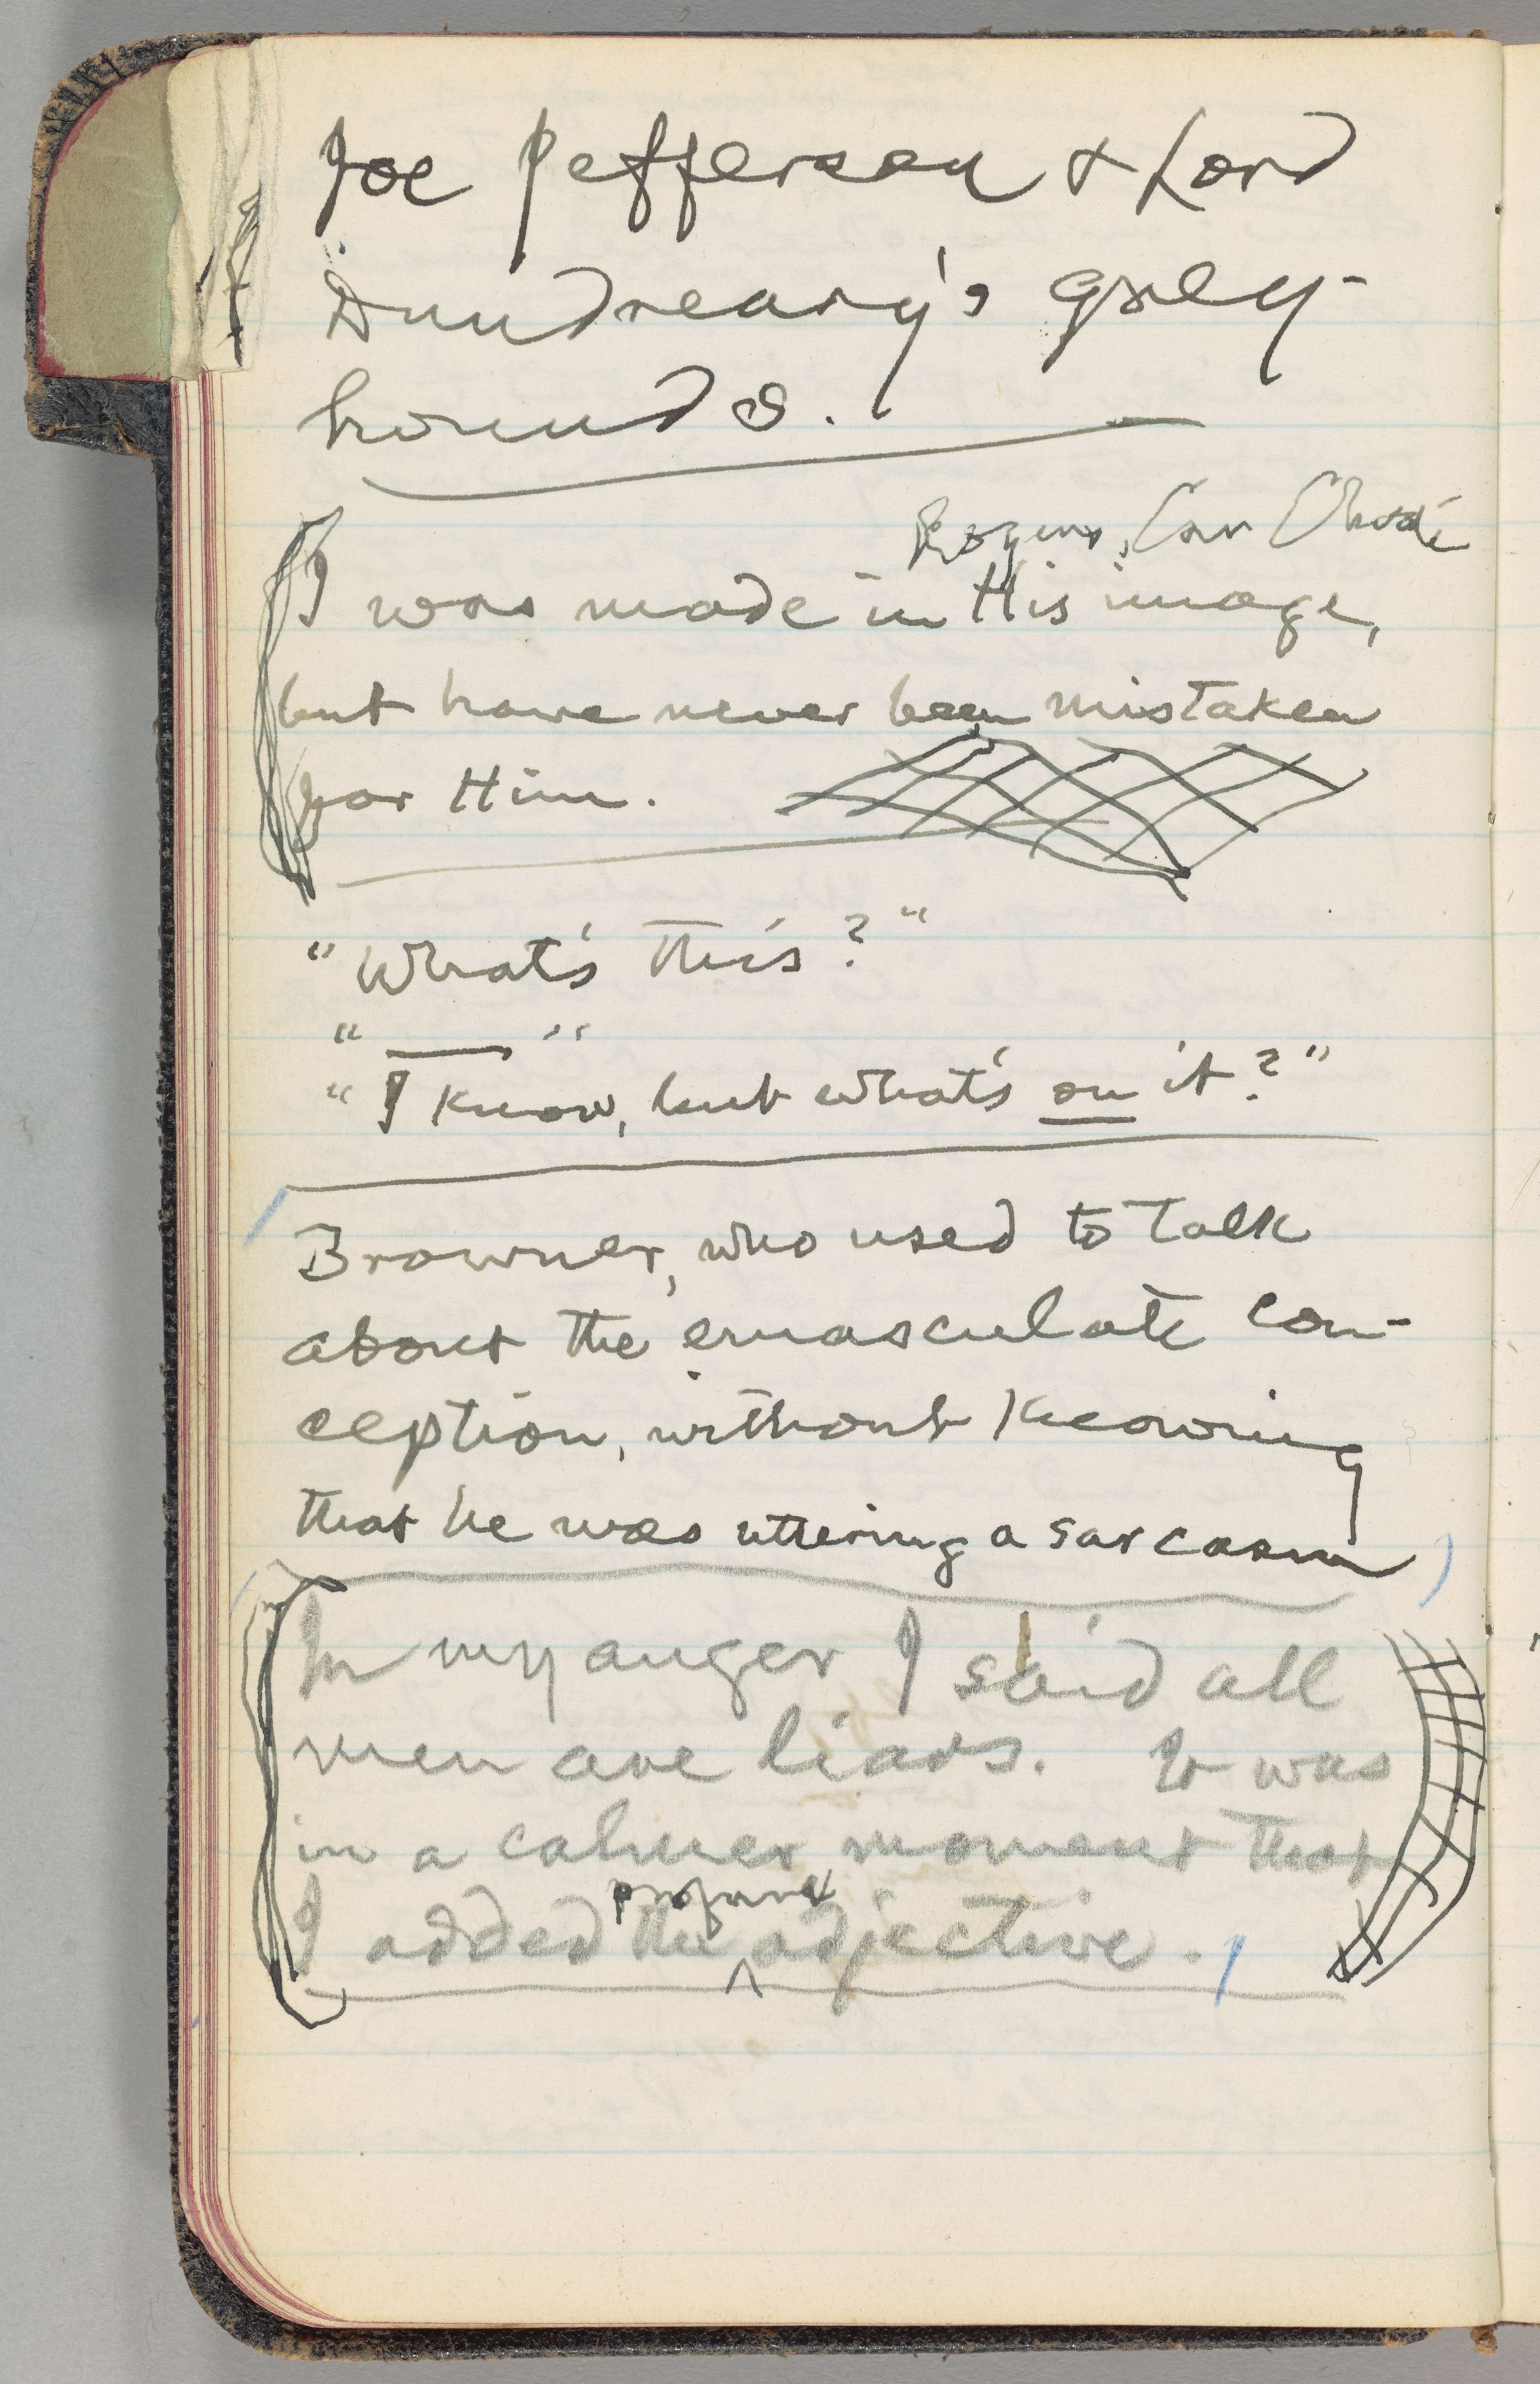 Joe Jefferson & Lord
Dundreary's grey-
hounds.
Rogers,
I was made in His image,
but have never been mistaken
for Him.
"What's this?"
" — "
"I know, but what's on it?"
Browner, who used to talk
about the emasculate con-
ception, without knowing
that he was uttering a sarcasm
In my anger I said all
men are liars. It was
in a calmer moment that
profane
I added the ^ adjective.